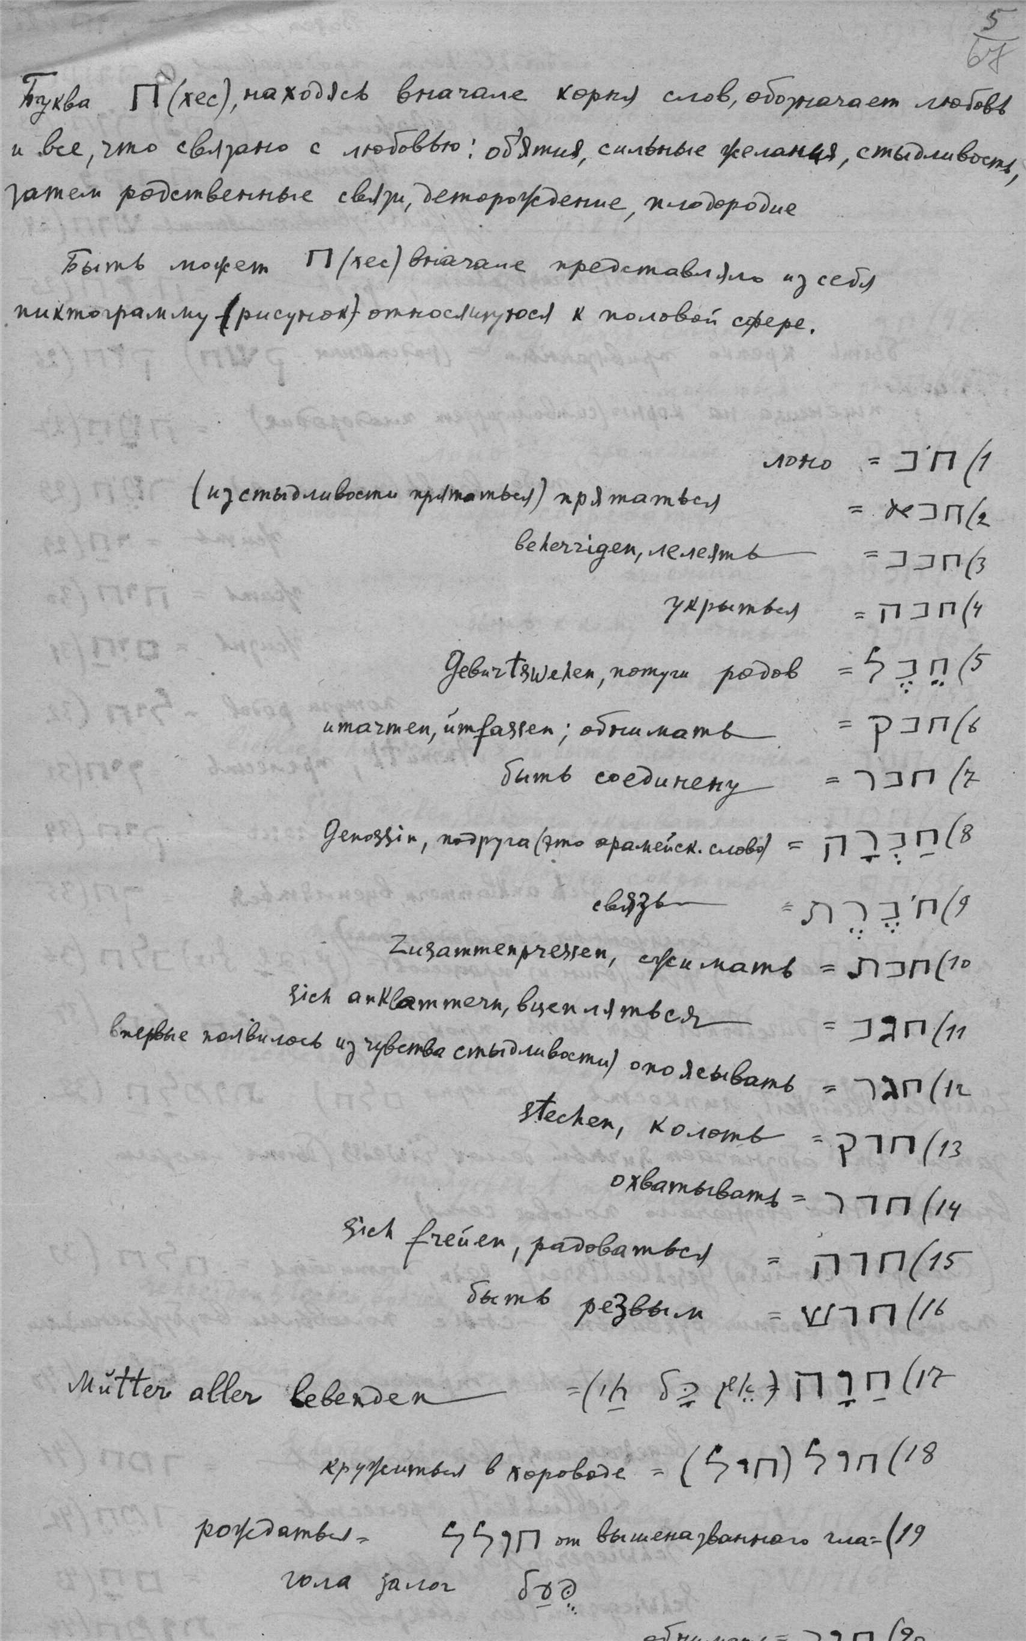 5
67
Буква ח (хес), находясь вначале корня слов, обозначает любовь
и все, что связано с любовью: об'ятия, сильные желания, стыдливость,
затем родственные связи, деторождение, плодородие
Быть может ח (хес) вначале представляло из себя
пиктограмму (рисунок) относящуюся к половой сфере.
лоно = חֹב (1
(из стыдливости прятаться) прятаться = חבא (2
beherzigen, лелеять = חבב (3
укрыться = חבה (4
Geburtswehen, потуги родов = חֵבֶל (5
umarmen, úmfassen; обнимать = חבק (6
быть соединену = חבר (7
Genossin, подруга (это арамейск. слово) = חַבְרָה (8
связь = חֹבֶרֶת (9
Zusammenpressen, сжимать = חבת (10
sich anklammern, вцепляться = חגב (11
впервые появилось из чувства стыдливости) опоясывать = חגר (12
stechen, колоть = חדק (13
охватывать = חדר (14
sich freúen, радоваться = חדה (15
быть резвым = חדש (16
Mútter aller lebenden = חַוָה (אֵם כָּל חַי) (17
кружиться в хороводе = חול (חיל) (18
рождаться = חולל от вышеназванного гла= (19
гола залог פֻּעַל
обнимать = (20